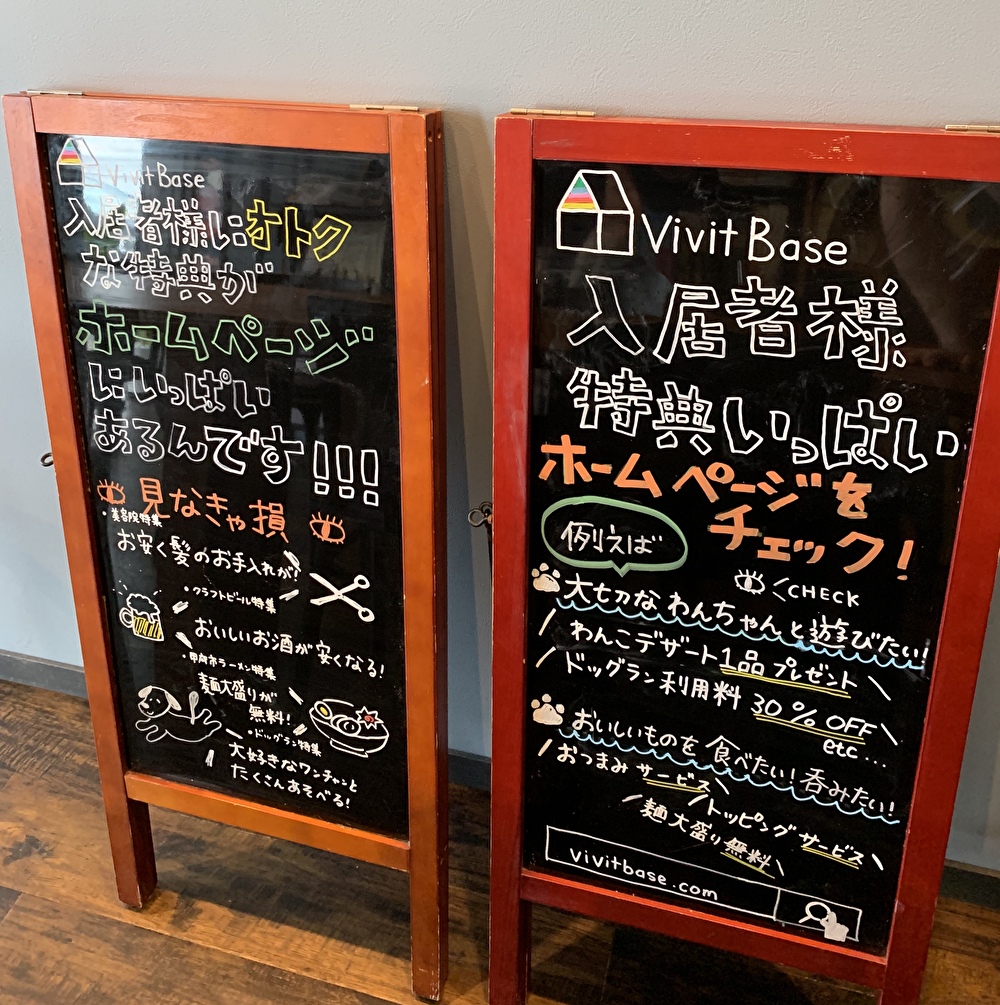 Vivit Base
入居者様にオトク
な特典が
ホームページ
にいっぱい
あるんです!!!
見なきゃ損
・美容院特集
お安く髪のお手入れが!
・クラフトビール特集
おいしいお酒が安くなる!
・甲府市ラーメン特集
麺大盛りが
無料!
・ドッグラン特集
大好きなワンチャンと
たくさんあそべる!
Vivit Base
入居者様
特典いっぱい
ホームページを
チェック!
例えば
CHECK
大切なわんちゃんと遊びたい!
わんこデザート1品プレゼント
ドッグラン利用料 30%OFF
etc...
おいしいものを食べたい!呑みたい!
おつまみサービス
トッピングサービス
麺大盛り無料
vivitbase.com